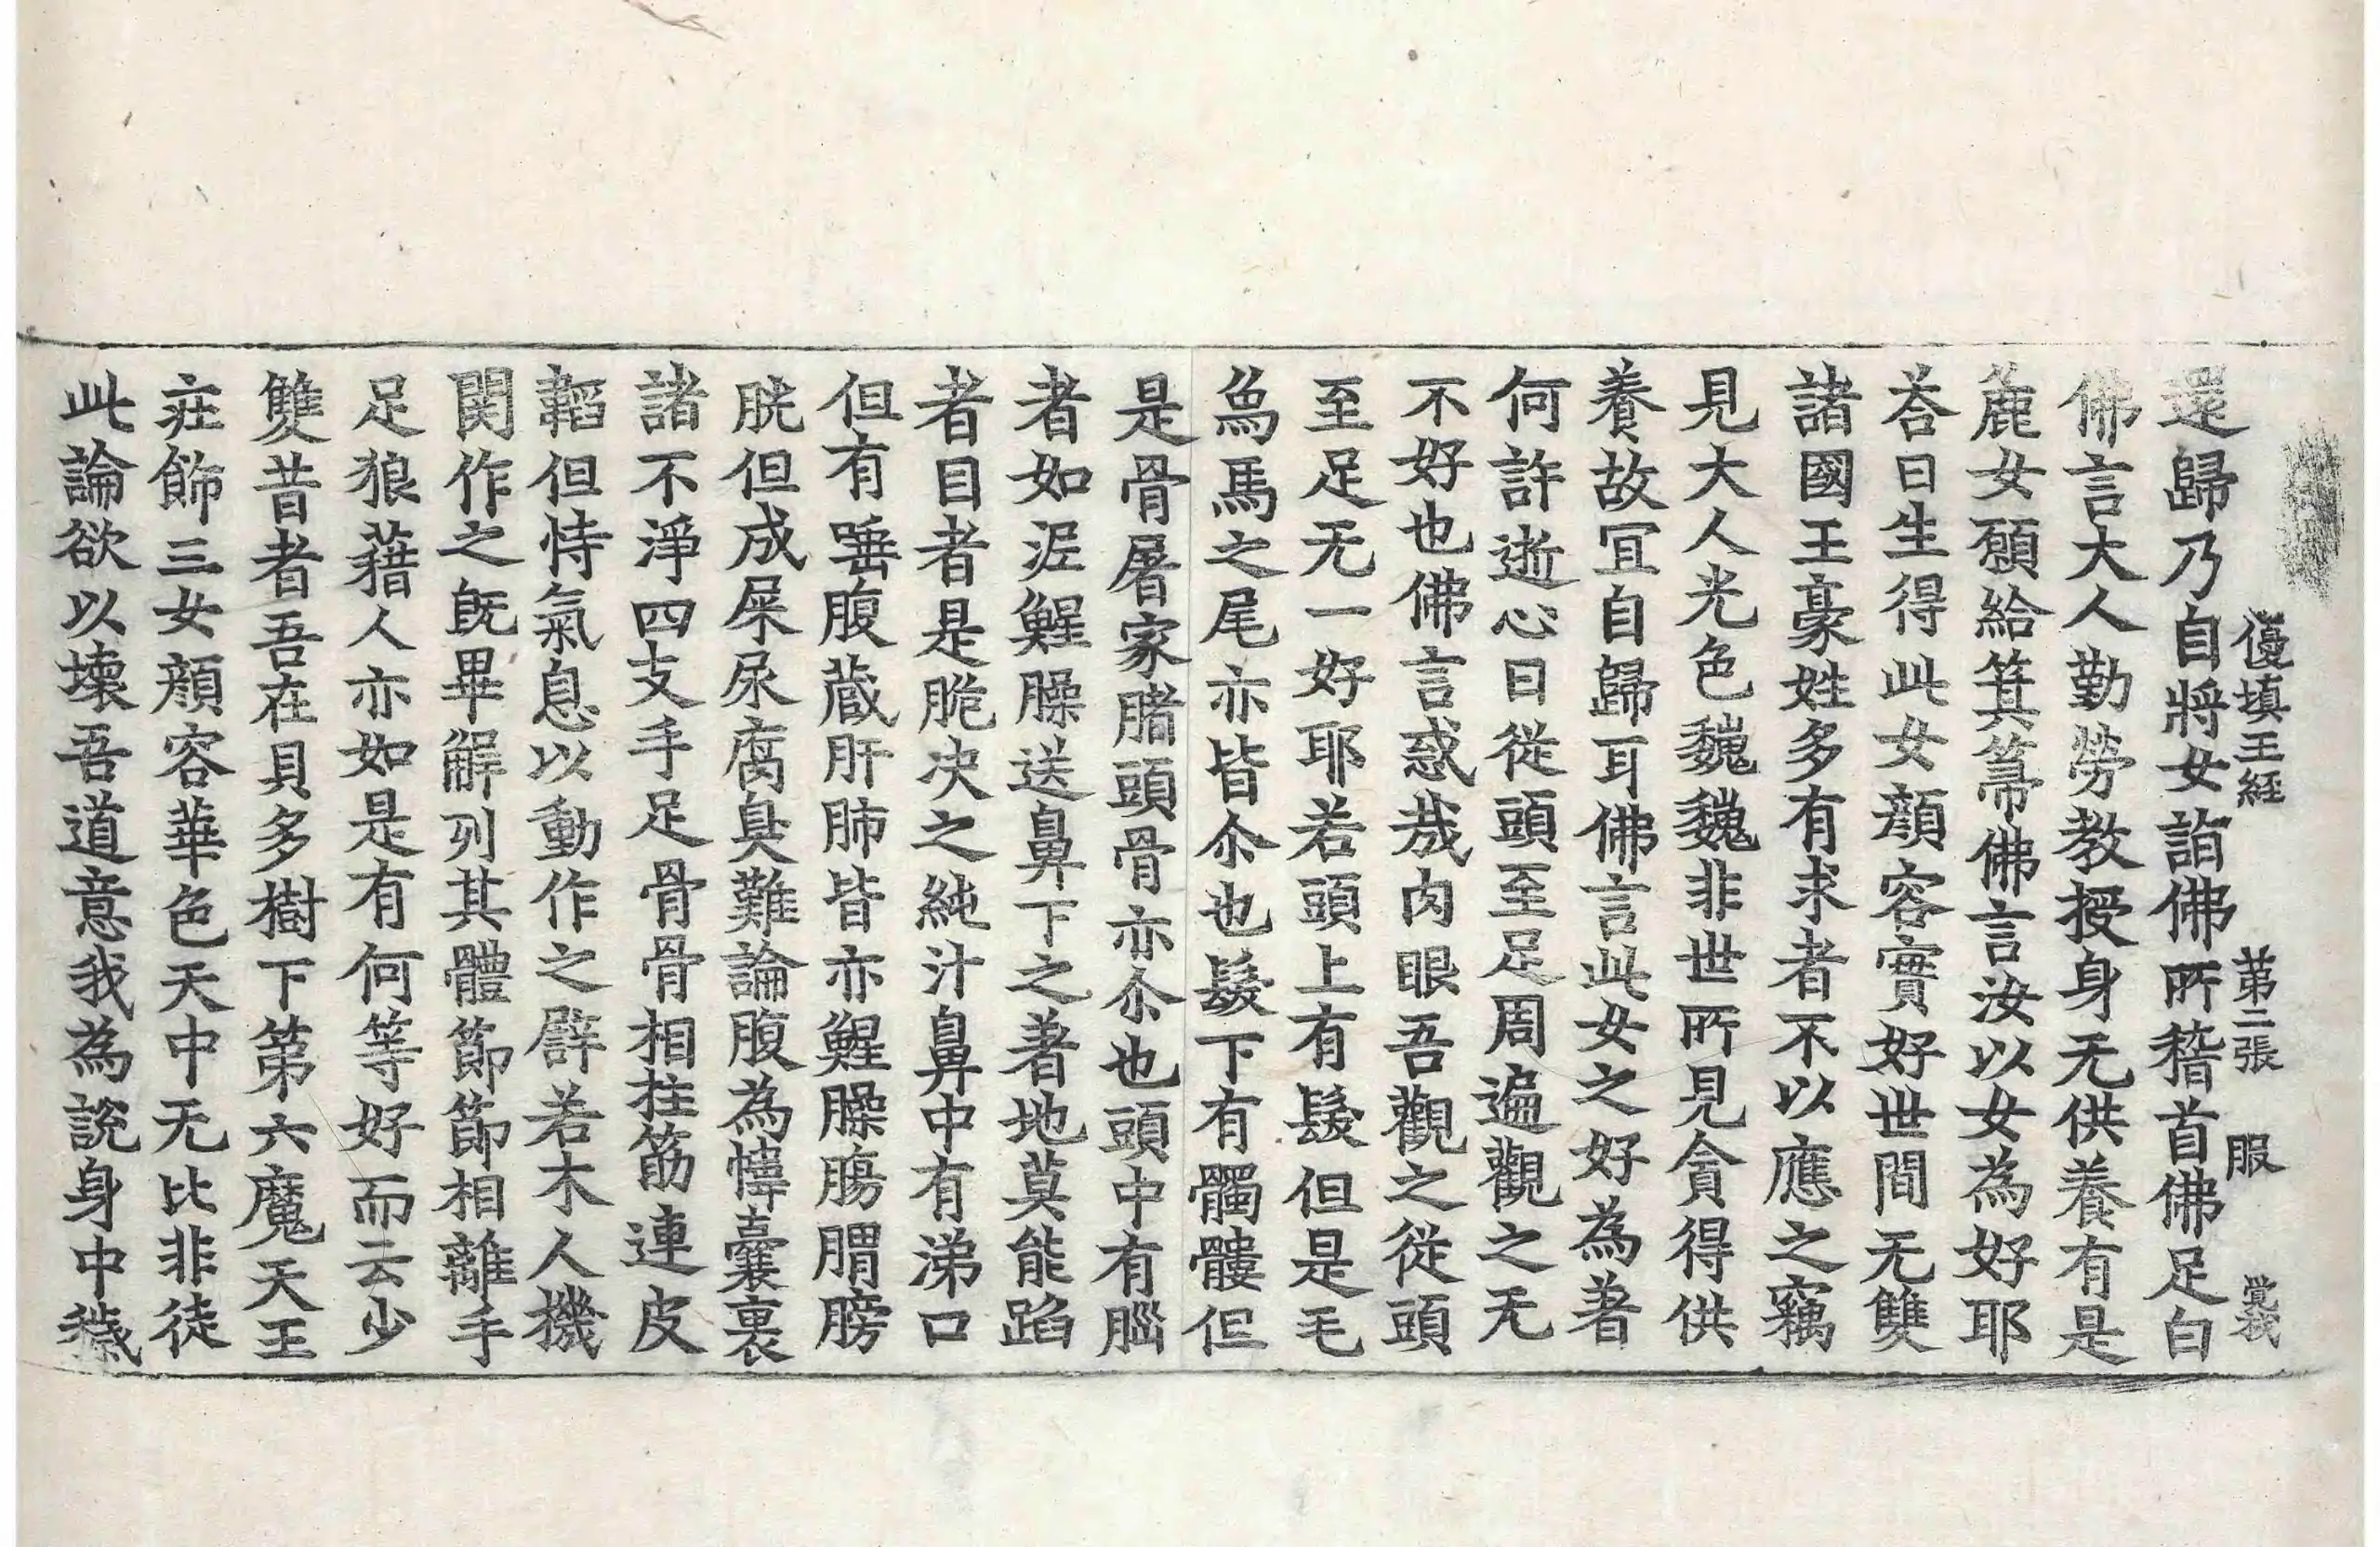 優填王經　第二張　服
還歸乃自將女詣佛所稽首佛足白
佛言大人勤勞教授身无供養有是
麁女願給箕箒佛言汝以女為好耶
荅曰生得此女顔容實好世間无雙
諸國王豪姓多有求者不以應之竊
見大人光色巍巍非世所見貪得供
養故冝自歸耳佛言此女之好為著
何許逝心曰從頭至足周遍觀之无
不好也佛言惑哉肉眼吾觀之從頭
至足无一好耶若頭上有髮但是毛
為馬之尾亦皆尒也髮下有髑髏但
是骨屠家膳頭骨亦尒也頭中有腦
者如泥鯹臊送鼻下之著地莫能蹈
者目者是脆决之純汁鼻中有涕口
但有唾腹藏肝肺皆亦鯹臊膓胃膀
胱但成屎尿腐臭難論腹為幃囊裹
諸不淨四支手足骨骨相拄筋連皮
韜但恃氣息以動作之辟若木人機
関作之既畢解列其體節節相離手
足狼藉人亦如是有何等好而云少
雙昔者吾在貝多樹下第六魔天王
莊飾三女顔容華色天中无比非徒
此論欲以壞吾道意我為說身中穢